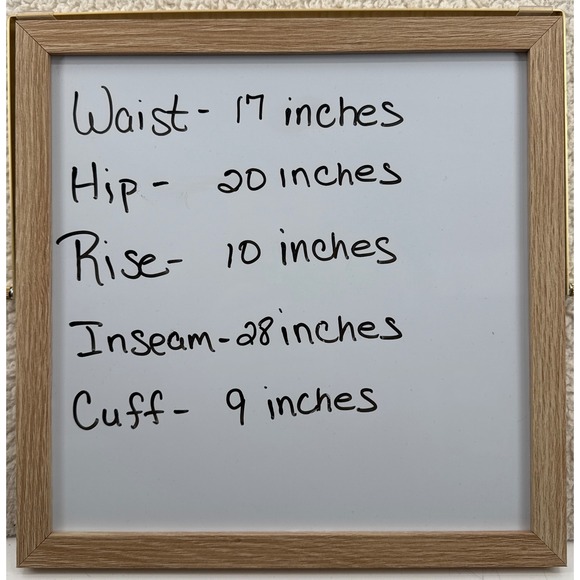 Waist- 17 inches
Hip- 20 inches
Rise- 10 inches
Inseam-28 inches
Cuff- 9 inches